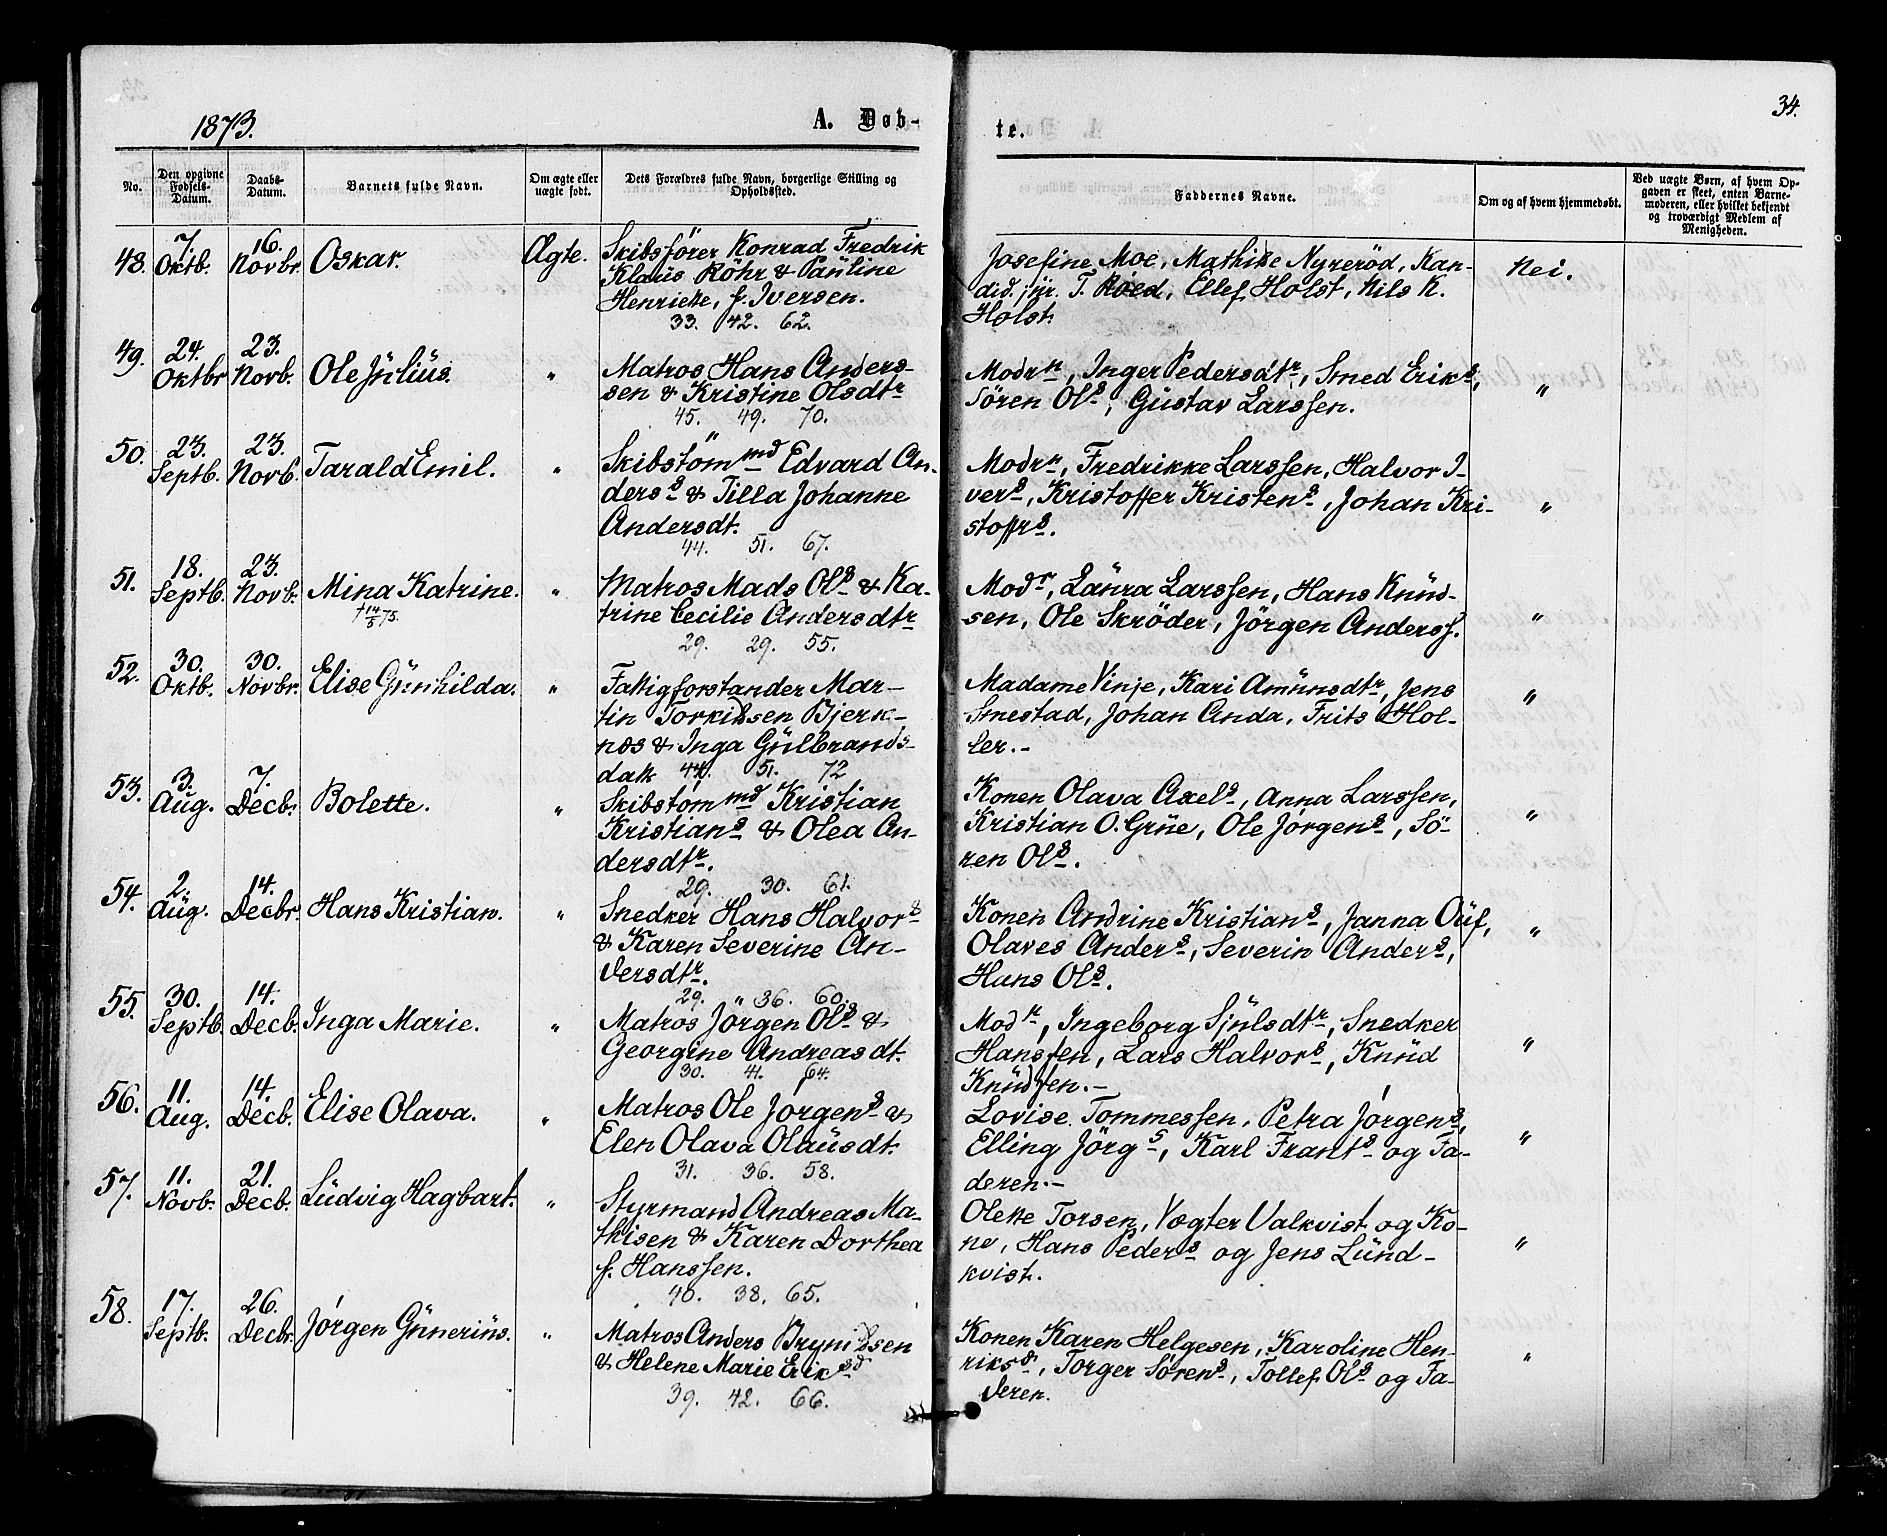 1873.
A. Døb-
te.
34.
No.
Den opgivne Fødsels-Datum.
Daabs-Datum.
Barnets fulde Navn.
Om ægte eller uægte født.
Dets Forældres fulde Navn, borgerlige Stilling og Opholdssted.
Faddernes Navne.
Om og af hvem hjemmedøbt.
Ved uægte Børn, af hvem Op-
gaven er skeet, enten Barne-
moderen, eller hvilket bekjendt
og troværdigt Medlem af
Menigheden.
48. 7. Oktb. 16. Novbr. Oskar. Ægte.
Skibsfører Konrad Fredrik
Klaus Röhr & Pauline
Henriette, f. Iversen.
33. 42. 62.
Josefine Moe, Mathilde Nyrerød, Kan-
did. jur. T. Roed, Ellef Holst, Nils K.
Holst.
Nei.
49. 24. Oktbr 23. Novb. Ole Julius. "
Matros Hans Anders-
sen & Kristine Olsdtr
45. 49. 70.
Modrn, Inger Pedersdtr, Smed Eriks,
Sören Ols, Gustav Larssen.
"
50. 23. Septb. 23. Novb. Tarald Emil. "
Skibstømmd Edvard An-
derss & Tilla Johanne
Andersdt.
44. 51. 67.
Modrn, Fredrikke Larssen, Halvor I-
vers, Kristoffer Kristens, Johan Kri-
stoffrs.
"
51. 18. Septb. 23. Novb. Mina Katrine. "
† 14/5 75.
Matros Mads Ols & Ka-
trine Cecilie Andersdtr
29. 29. 55.
Modr, Laura Larssen, Hans Knud-
sen, Ole Skröder, Jörgen Anderss.
"
52. 30. Oktb. 30. Novbr. Elise Gunhilda. "
Fattigforstander Mar-
tin Torkildsen Bjerk-
næs & Inga Gulbrands-
datt 44. 51. 72
Madame Vinje, Kari Amundsdtr, Jens
Smestad, Johan Anda, Frits Hol-
ler.-
"
53. 3. Aug. 7. Decbr. Bolette. "
Skibstømmd Kristian
Kristians & Olea An-
dersdtr.
29. 30. 61.
Konen Olava Axels, Anna Larssen,
Kristian O. Grue, Ole Jørgens, Sö-
ren Ols.
"
54. 2. Aug. 14. Decbr. Hans Kristian. "
Snedker Hans Halvors
& Karen Severine An-
dersdtr.
29. " 36. 60.
Konen Andrine Kristians, Janna Ouf,
Olaves Anders, Severin Anders,
Hans Ols.
"
55. 30. Septb. 14. Decb. Inga Marie. "
Matros Jörgen Ols &
Georgine Andreasdt.
30. 41. 64.
Modn, Ingeborg Sjulsdtr, Snedker
Hanssen, Lars Halvors, Knud
Knudsen.-
"
56. 11. Aug. 14. Decb. Elise Olava. "
Matros Ole Jørgens &
Elen Olava Olausdt.
31. 36. 58.
Lovise Tommessen, Petra Jørgens,
Elling Jörgs, Karl Frants og Fa-
deren.-
"
57. 11. Novb. 21. Decb. Ludvig Hagbart. "
Styrmand Andreas Ma-
thisen & Karen Dorthea
f. Hanssen.
40. 38. 65.
Olette Torsen, Vægter Valkvist og Ko-
ne, Hans Peders og Jens Lund-
kvist.
"
58. 17. Septb. 26. Decbr. Jørgen Gunerius. "
Matros Anders Brynildsen
& Helene Marie Eriksd
39. 42. 66.
Konen Karen Helgesen, Karoline Hen-
riksdr, Torger Sörens, Tollef Ols og Fa-
deren.
"